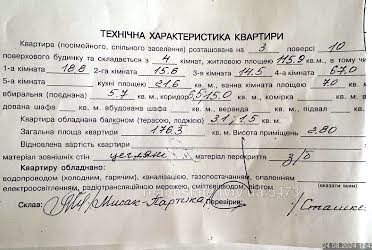 ТЕХНІЧНА ХАРАКТЕРИСТИКА КВАРТИРИ
Квартира (посімейного, спільного заселення) розташована на 3 поверсі 10
поверхового будинку та складається з 4 кімнат, житловою площею 115.9 кв.м., в тому числі
1-а кімната 18.8 2-га кімната 15.6 3-я кімната 14.5 4-та кімната 67.0
5-а кімната кухні площею 21.6 кв. м, ванна кімната площею 7.0 кв. м,
вбиральня (поєднана) 5.7 кв. м, коридор 6,5, 15.0 кв. м., комірка кв. м., вбудована
дована шафа кв. м, вбудована шафа кв. м, веранда кв. м, підвал кв. м.
Квартира обладнана балконом (терасою, лоджією) 3.1; 1.5 кв. м.
Загальна площа квартири 176,3 кв. м. Висота приміщень 2.80
Відновлена вартість квартири
матеріал зовнішніх стін цегляні матеріал перекриття з/б
Квартиру обладнано:
водопроводом (холодним, гарячим), каналізацією, газопостачанням, опаленням
електроосвітленням, радіотрансляційною мережею, сміттєпроводом, ліфтом.
(вказати яким)
Склав: Перевірив:
24.08.2024